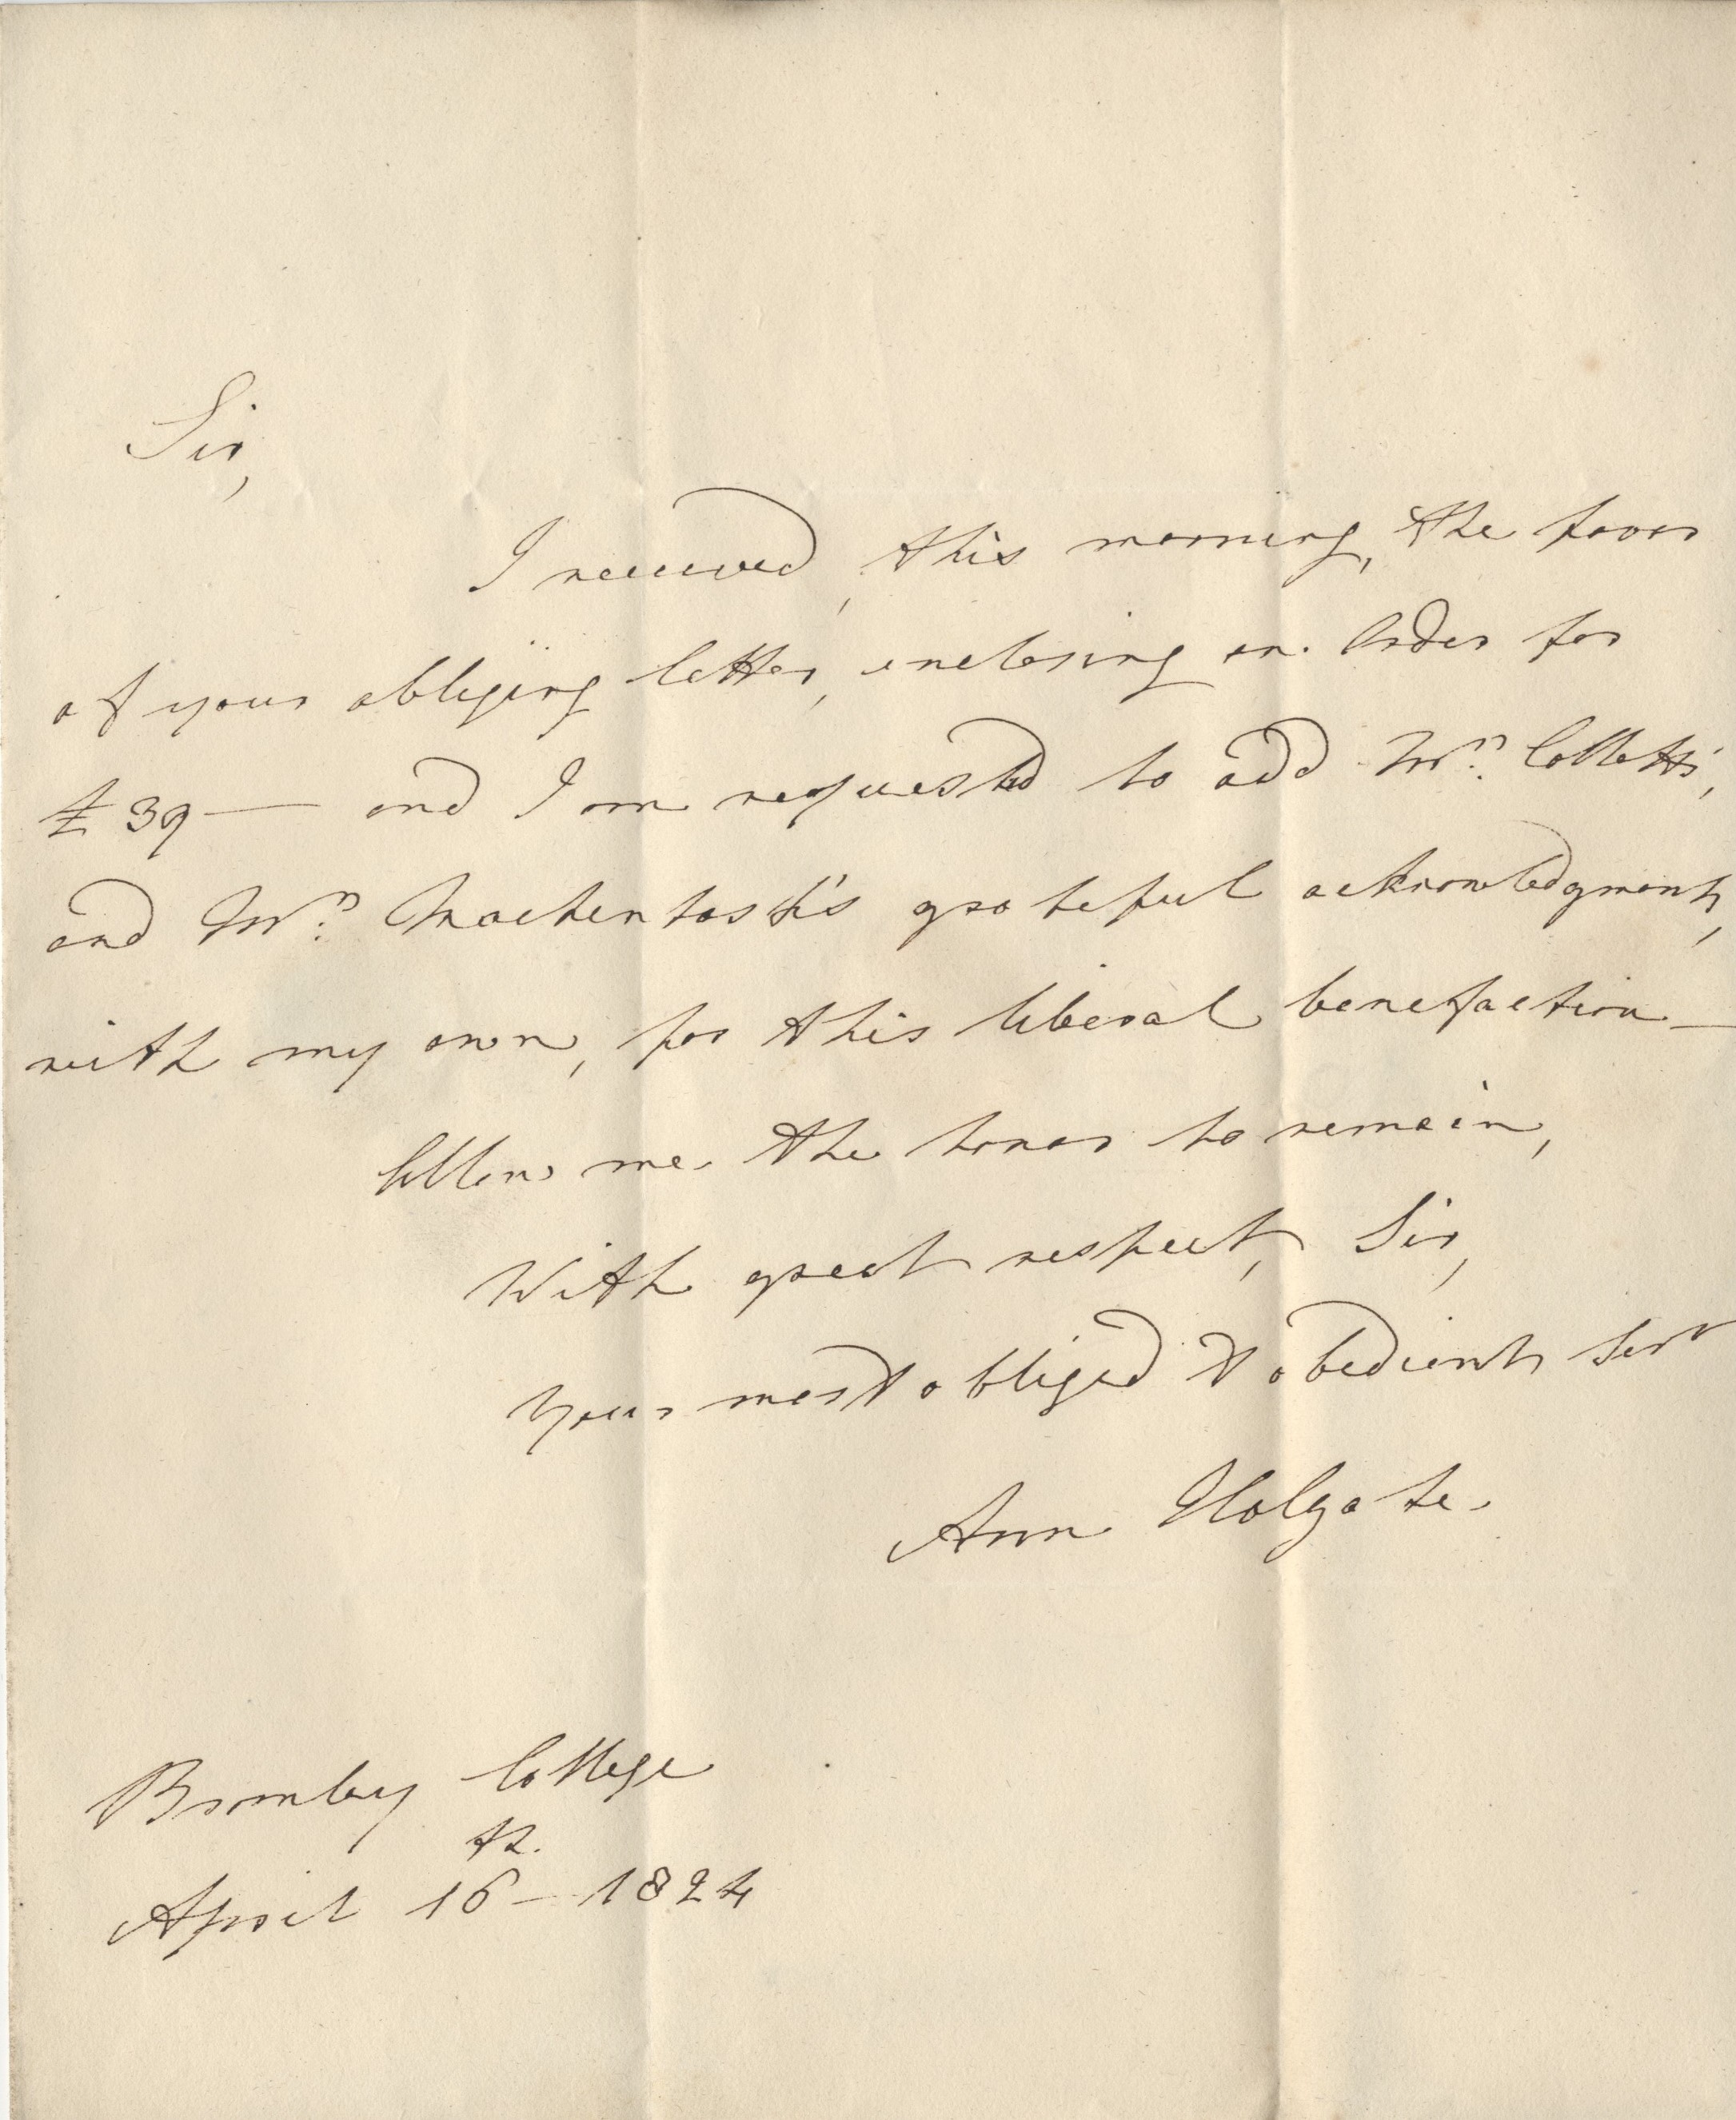 Sir,
I received, this morning, the favor
of your obliging letter, enclosing an Order for
£39 — and I am requested to add Mrs. Colletts,
and Mrs. Mackentosh's grateful acknowledgments,
with my own, for this liberal benefaction —
Allow me the honor to remain,
With great respect, Sir,
Your most obliged & obedient Sert
Ann Holgate.
Bromley College
th.
April 16 - 1824